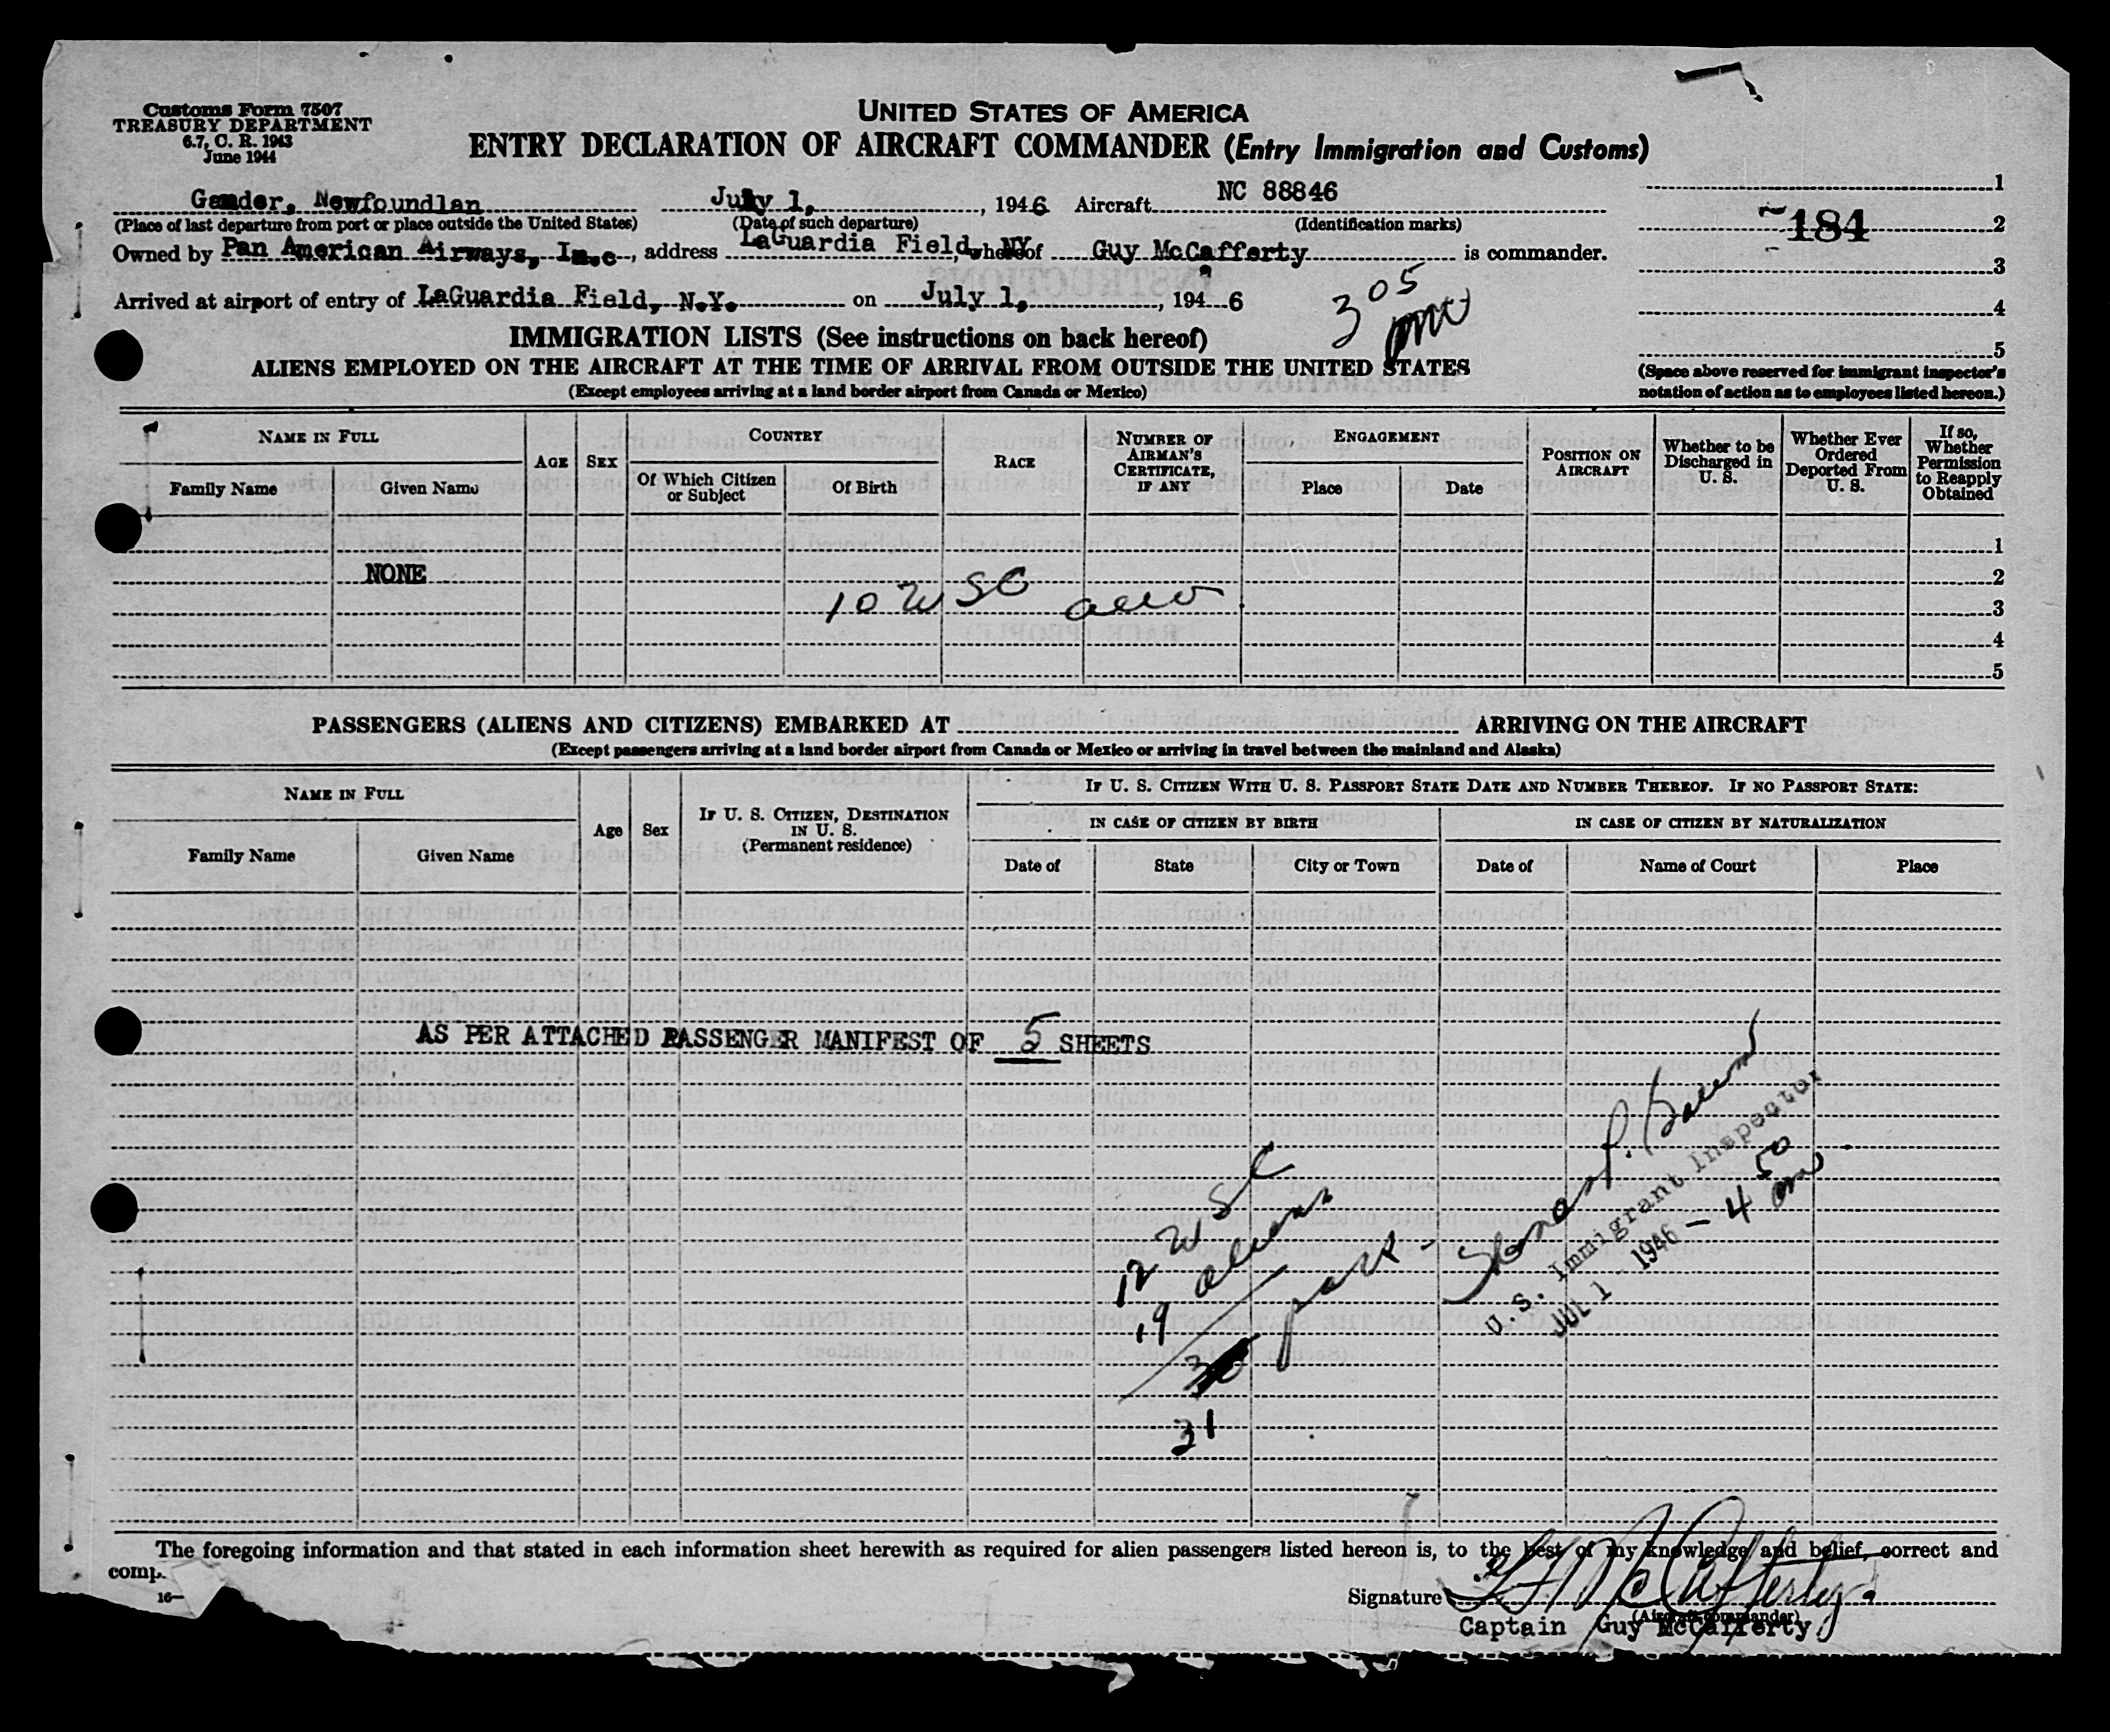 Customs Form 7507
TREASURY DEPARTMENT
6.7, C. R. 1943
June 1944
UNITED STATES OF AMERICA
ENTRY DECLARATION OF AIRCRAFT COMMANDER (Entry Immigration and Customs)
Gander, Newfoundlan July 1, , 1946 Aircraft NC 88846
(Place of last departure from port or place outside the United States) (Date of such departure) (Identification marks)
Owned by Pan American Airways, Inc , address LaGuardia Field, NY whereof Guy McCafferty is commander.
Arrived at airport of entry of LaGuardia Field, N.Y. on July 1, , 194 6
305
1
184 2
3
4
5
(Space above reserved for immigrant inspector's
notation of action as to employees listed hereon.)
IMMIGRATION LISTS (See instructions on back hereof)
ALIENS EMPLOYED ON THE AIRCRAFT AT THE TIME OF ARRIVAL FROM OUTSIDE THE UNITED STATES
(Except employees arriving at a land border airport from Canada or Mexico)
NAME IN FULL
Family Name Given Name
AGE SEX
COUNTRY
Of Which Citizen or Subject
Of Birth
RACE
NUMBER OF AIRMAN'S CERTIFICATE, IF ANY
ENGAGEMENT
Place Date
POSITION ON AIRCRAFT
Whether to be Discharged in U. S.
Whether Ever Ordered Deported From U. S.
If so, Whether Permission to Reapply Obtained
1
NONE 2
10 W SC 3
4
5
PASSENGERS (ALIENS AND CITIZENS) EMBARKED AT ARRIVING ON THE AIRCRAFT
(Except passengers arriving at a land border airport from Canada or Mexico or arriving in travel between the mainland and Alaska)
NAME IN FULL
Family Name Given Name
Age Sex
IF U. S. CITIZEN, DESTINATION IN U. S.
(Permanent residence)
IF U. S. CITIZEN WITH U. S. PASSPORT STATE DATE AND NUMBER THEREOF. IF NO PASSPORT STATE:
IN CASE OF CITIZEN BY BIRTH IN CASE OF CITIZEN BY NATURALIZATION
Date of State City or Town Date of Name of Court Place
AS PER ATTACHED PASSENGER MANIFEST OF 5 SHEETS
12 W SC
19 aliens
31
U. S. Immigrant Inspector
JUL 1 - 1946 - 4 50
The foregoing information and that stated in each information sheet herewith as required for alien passengers listed hereon is, to the best of my knowledge and belief, correct and
comp
16—
Signature G McCafferty
(Aircraft commander)
Captain Guy McCafferty